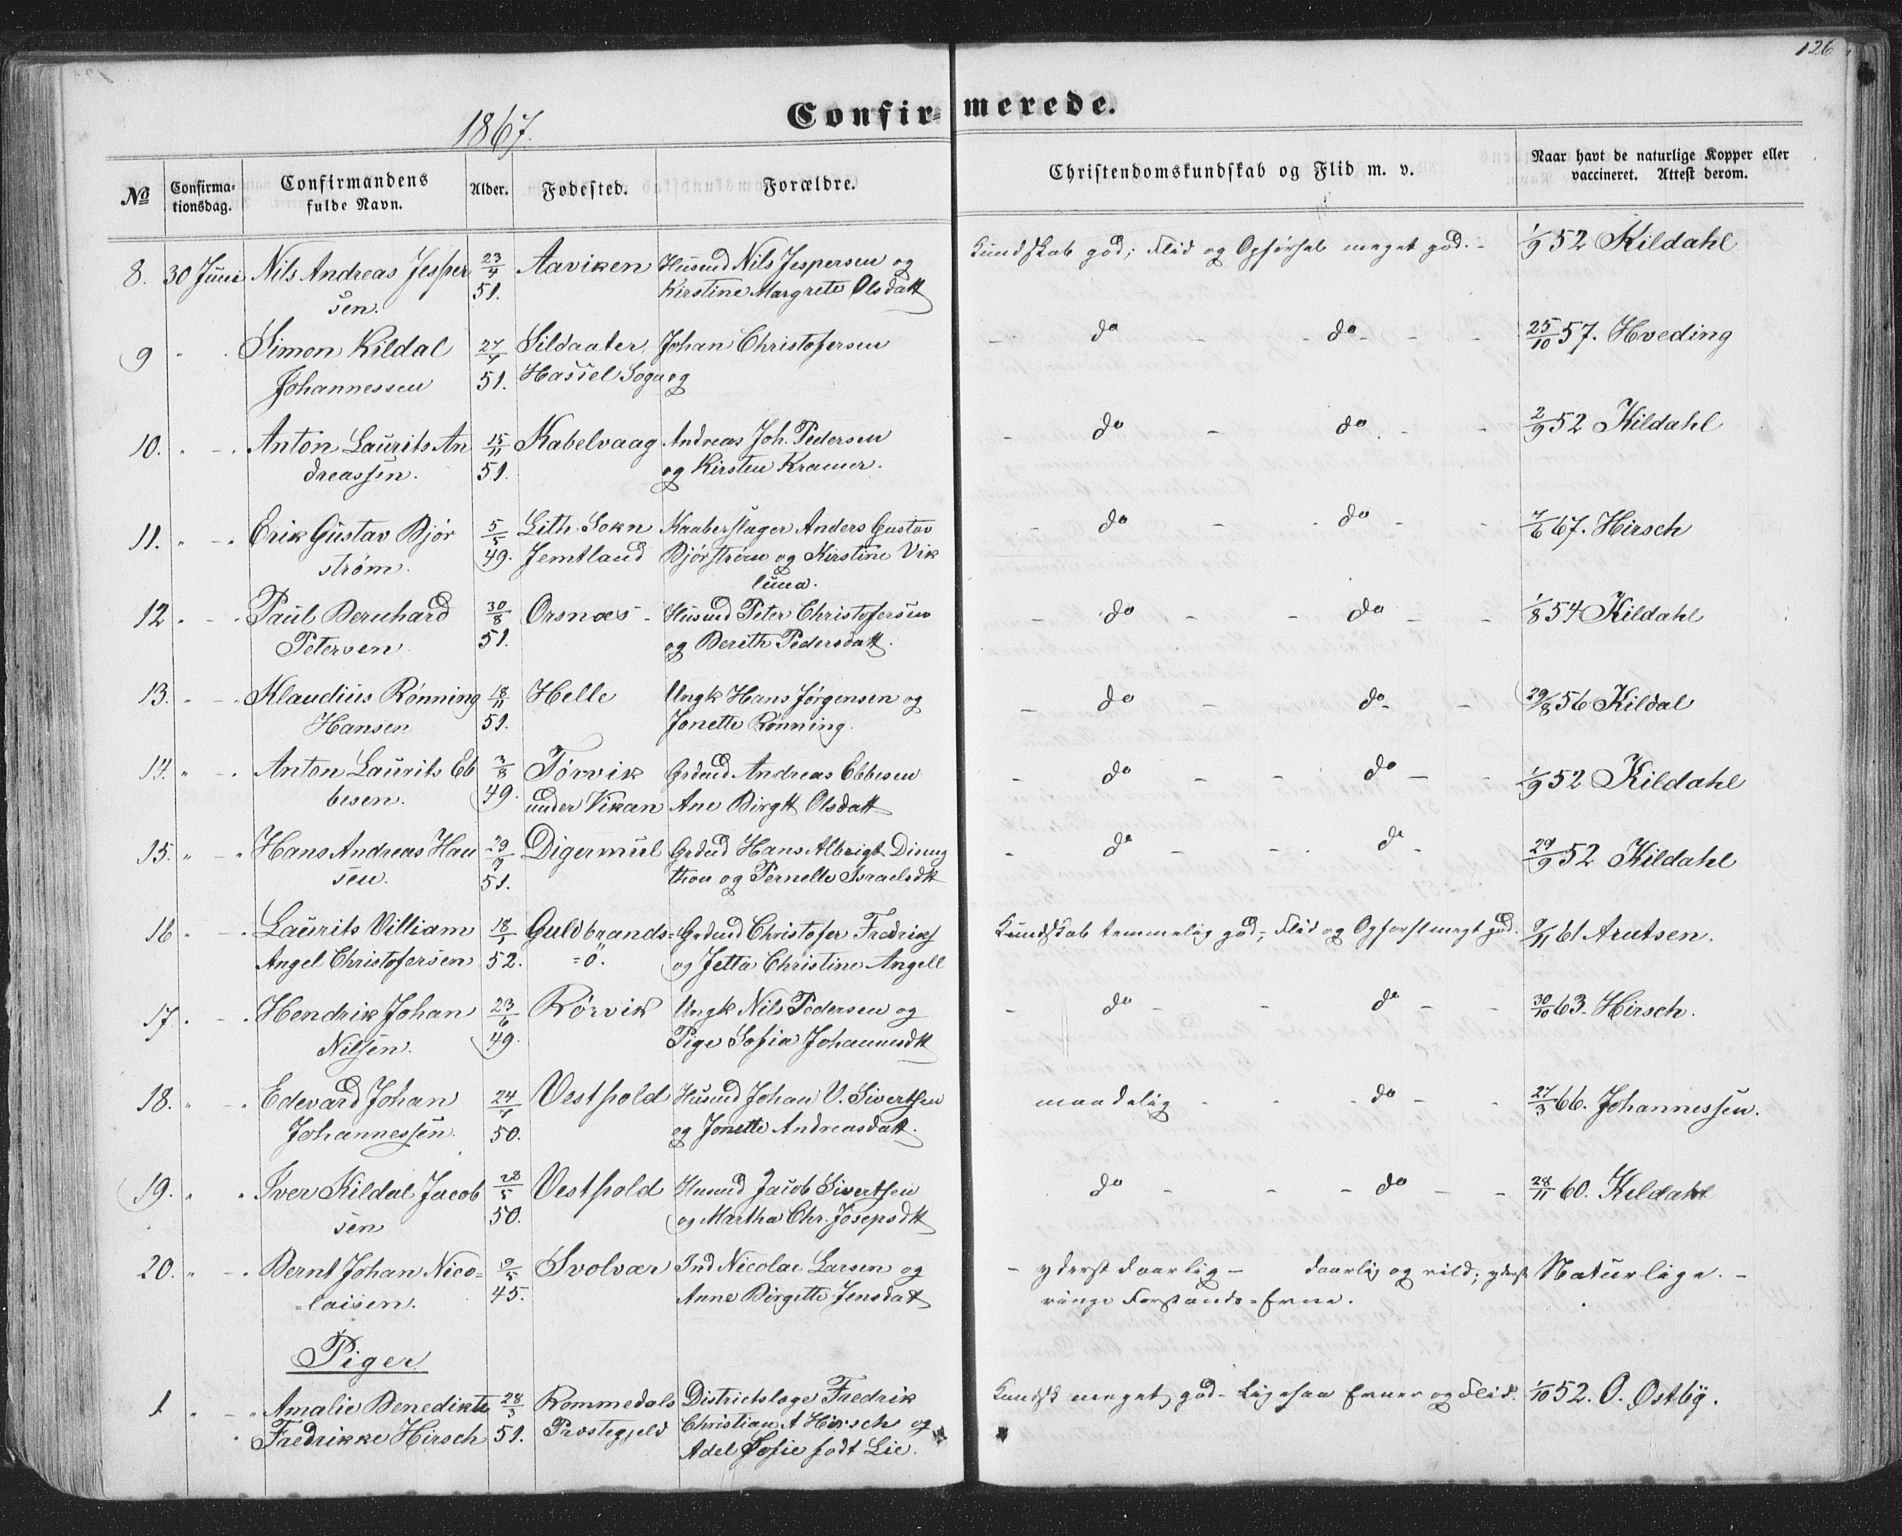 126
1867.
Confir= merede.
No Confirma-tionsdag. Confirmandens fulde Navn. Alder. Fødested. Forældre. Christendomskundskab og Flid m. v. Naar havt de naturlige Kopper eller vaccineret. Attest derom.
8. 30 Juni Nils Andreas Jesper 23/4 Aaviken Husmd Nils Jespersen og Kundskab god; Flid og Opførsel meget god. - 1/9 52 Kildahl
sen. 51. Kirstine Margrete Olsdatt
9 " " Simon Kildal 27/4 Sildaater Johan Christofersen - do - - do - - 25/10 57. Hveding
Johannessen 51. Hassel Sogn og
10. " - " Anton Laurits An 15/11 Kabelvaag Andreas Joh. Pedersen - do - do - - 2/9 52 Kildahl
dreassen. 51. og Kirsten Kramer.
11. " - " Erik Gustav Bjør 5/5 Lith Sokn Kaaberslager Anders Gustav - do - do - - 7/6 67. Hirsch
strøm. 49. Jemtland Bjørstrøm og Kirstine Vik
luna.
12 " - " Paul Bernhard 30/8 Orsnæs - Husmd Peter Christofersen - do - - do - - 1/8 54 Kildahl
Petersen 51. og Bereth Pedersdatt.
13. " - " Klaudius Rønning 18/11 Helle Ungk Hans Jørgensen og - do - do - - 29/8 56 Kildal
Hansen 51. Jonette Rønning.
14. " - " Anton Laurits Eb 3/8 Tørvik Grdmd Andreas Ebbesen - do - - do - - 1/9 52 Kildahl
besen. 49. under Vikan Ane Birgtt Olsdatt
15. " - " Hans Andreas Han 29/9 Digermul Grdmd Hans Albrigt - do - - do - 29/9 52 Kildahl
sen. 51. og Pernelle Israelsdtt
16 " - " Laurits Villiam 18/1 Guldbrands= Grdmd Christofer Fredriks Kundskab temmelig god; Flid og Opførsl megt god. 9/11 61 Arntsen.
Angel Christofersen 52. =ö. og Jetta Christine Angell
17. " - " Hendrik Johan 23/6 Rørvik Ungk Nils Pedersen og - do - - do - - 30/10 63. Hirsch.
Nilsen. 49. Pige Sofia Johannesdtt
18. " - " Edevard Johan 24/4 Vestpold Husmd Johan V. Sivertsen maadelig - - do - - 27/3 66. Johannessen.
Johannessen. 50. og Jonette Andreasdatt.
19. " " Iver Kildal Jacob 28/5 Vestpold Husmd Jacob Sivertsen do - - do - - 28/11 60. Kildahl
sen 50. og Martha Chr. Josepsdtt
20. " - " Bernt Johan Nico= 9/5 Svolvær Ind Nicolai Larsen og - yderst daarlig - daarlig og vild; yderst Naturlige. -
=laisen. 45. Anne Birgette Jensdat ringe Forstands-Evne.
Piger
1 " - " Amalie Benedikte 28/3 Rommedals Districtslæge Fredrik Kundsk meget god - Ligesaa Evner og Flid. 1/10 52. O. Ostby.
Fredrikke Hirsch 51. Prostegjeld Christian A Hirsch og
Adel Sofie født Lie.